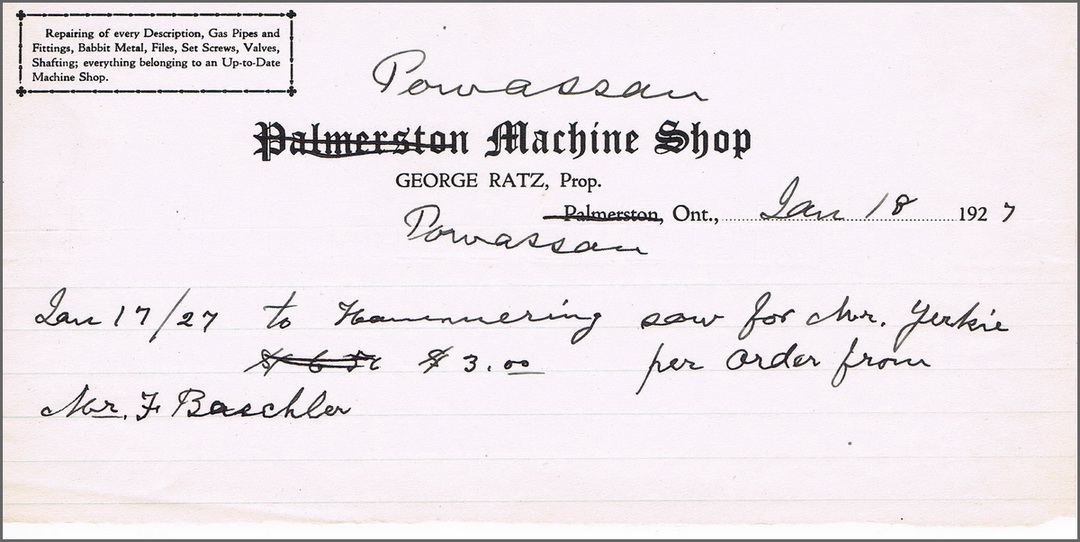 Repairing of every Description, Gas Pipes and
Fittings, Babbit Metal, Files, Set Screws, Valves,
Shafting; everything belonging to an Up-to-Date
Machine Shop.
Powassan
Palmerston Machine Shop
GEORGE RATZ, Prop.
Palmerston, Ont., Jan 18 1927
Powassan
Jan 17/27 to Hammering saw for Mr. Yerkie
$3.00 per order from
Mr. F Baechler